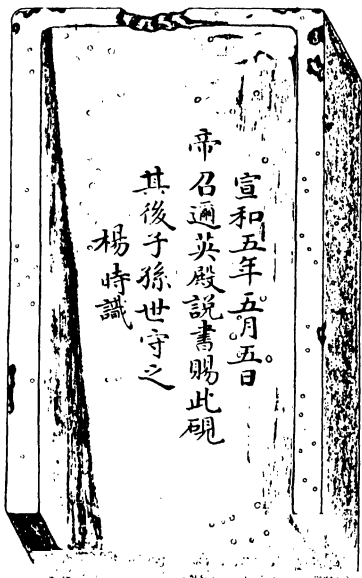 宣和五年五月五日
帝召邇英殿説書賜此硯
其後子孫世守之
楊時識